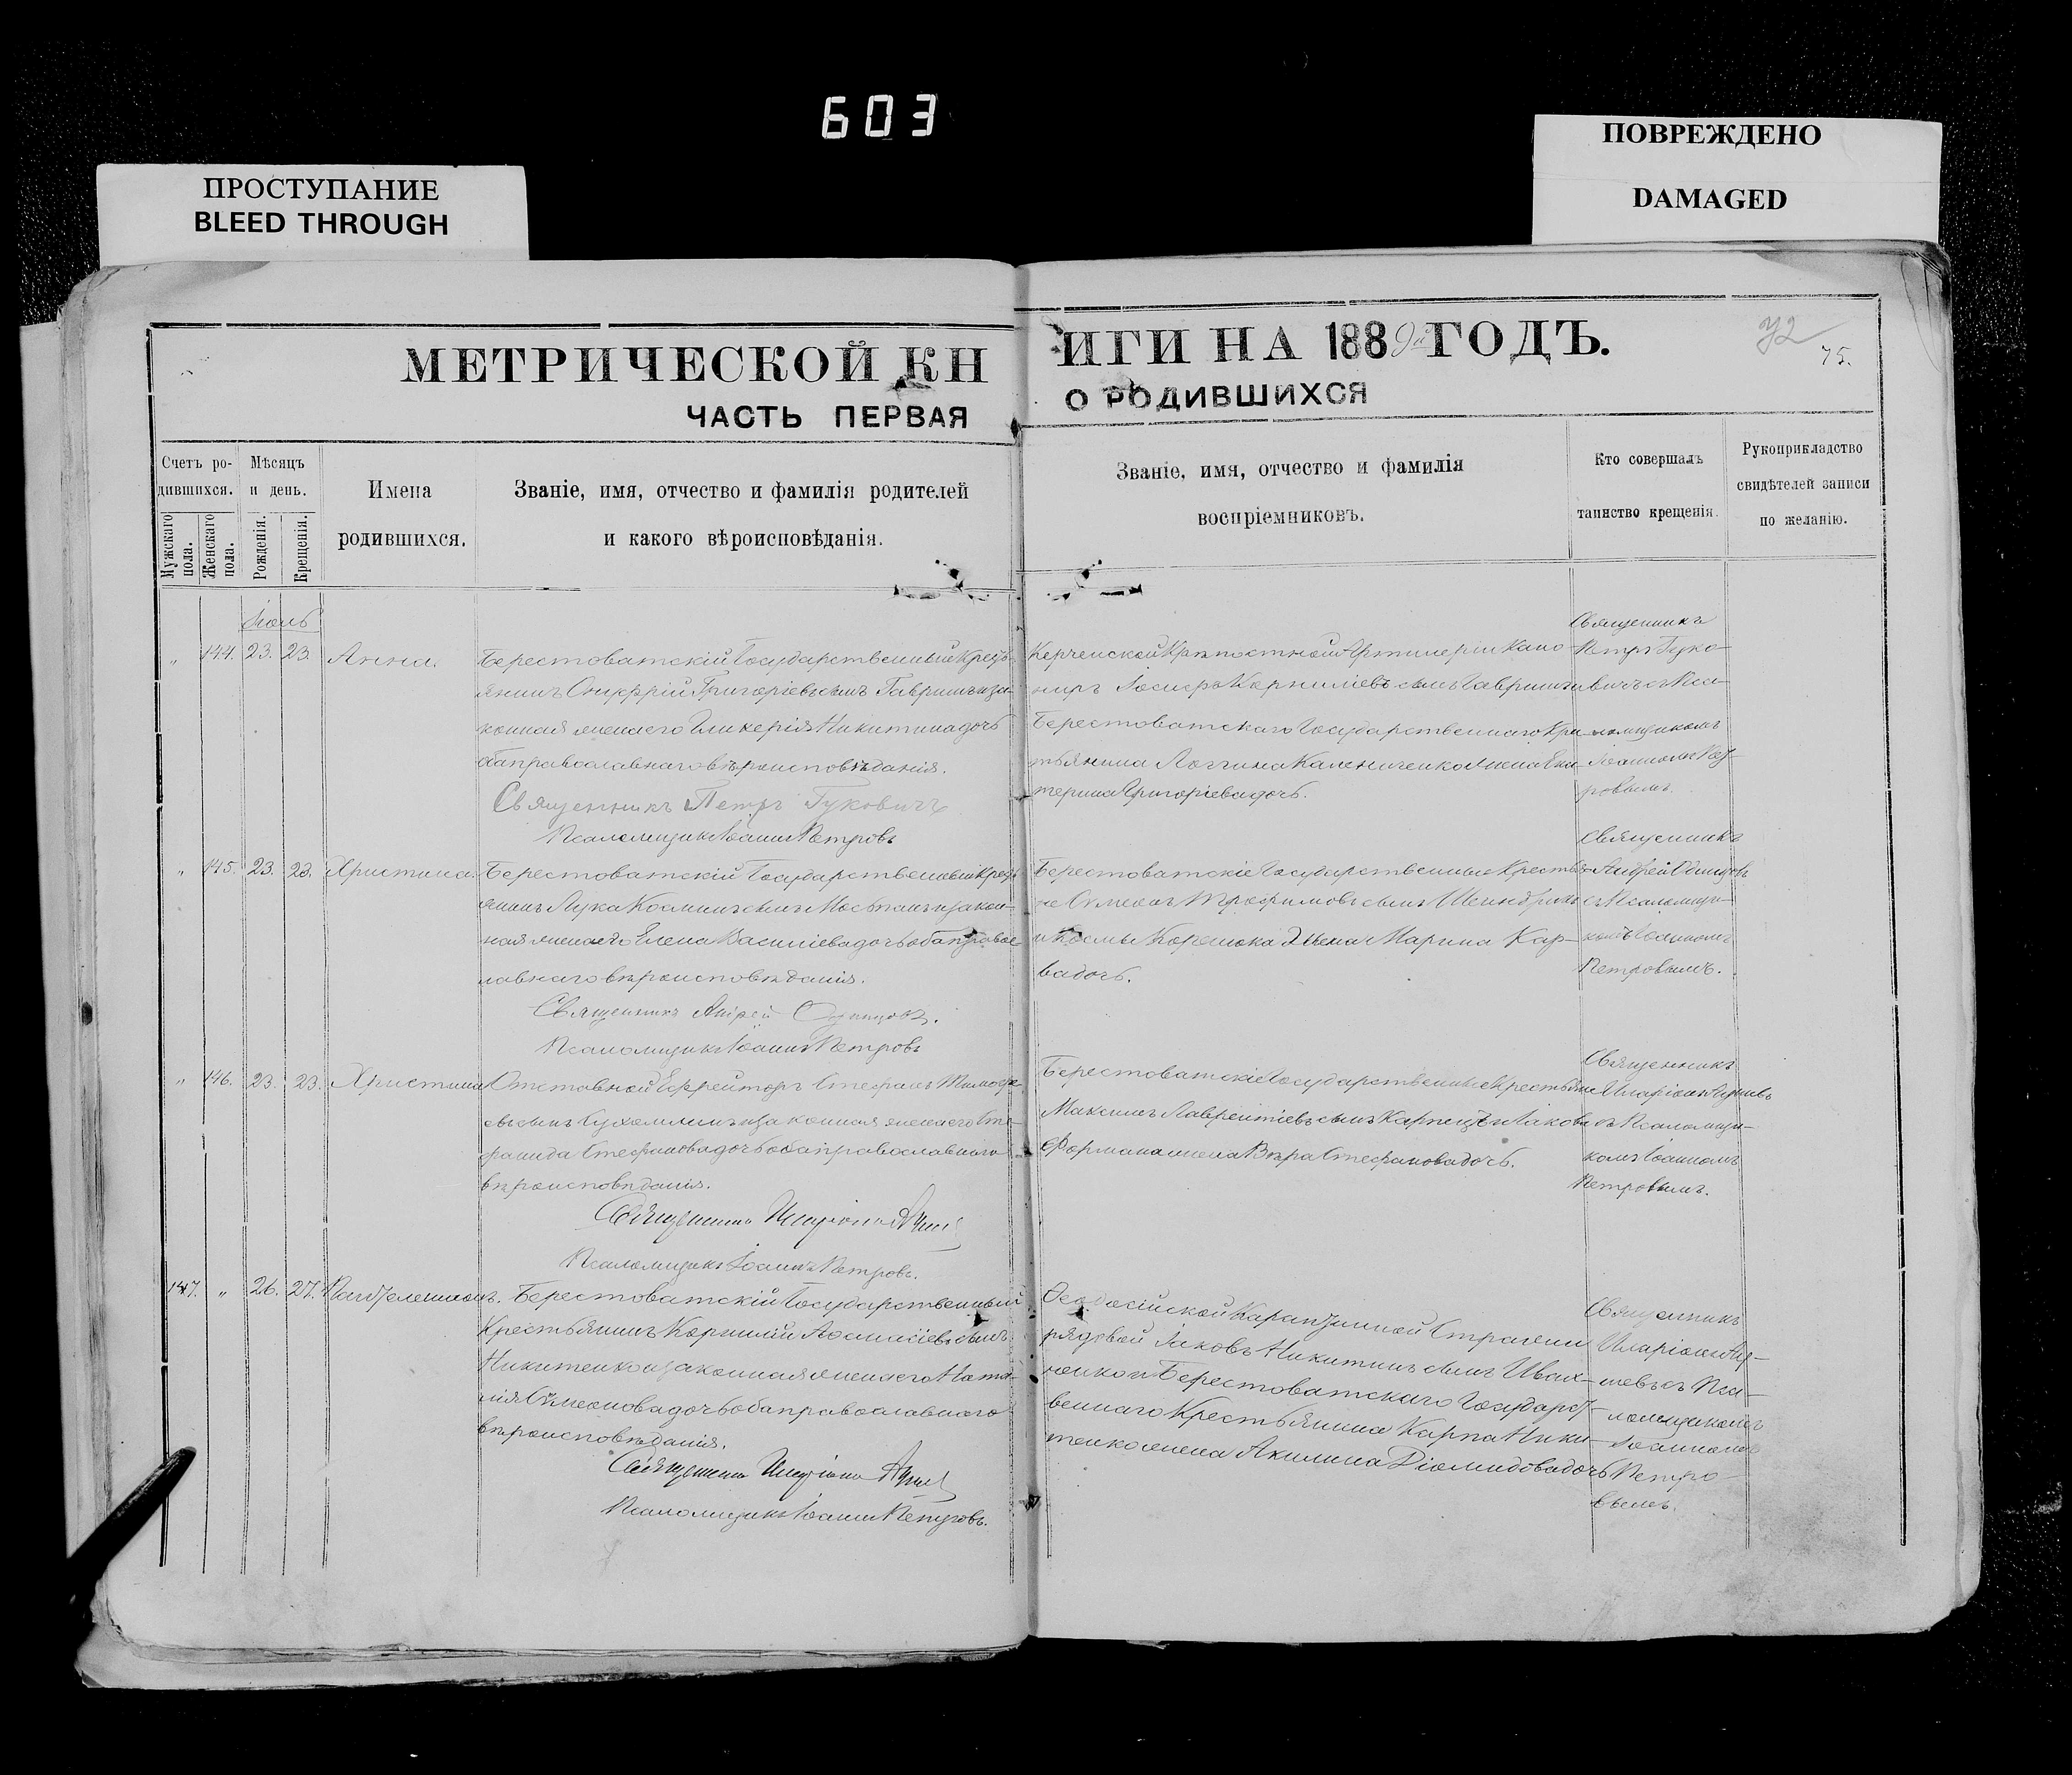 603
ПРОСТУПАНИЕ
BLEED THROUGH
ПОВРЕЖДЕНО
DAMAGED
МЕТРИЧЕСКОЙ КНИГИ НА 1889й ГОДЪ.
72
75.
ЧАСТЬ ПЕРВАЯ О РОДИВШИХСЯ
Счетъ ро-
дившихся.
Мужскаго пола.
Женскаго пола.
Мѣсяцъ
и день.
Рожденія.
Крещенія.
Имена
родившихся.
Званіе, имя, отчество и фамилія родителей
и какого вѣроисповѣданія.
Званіе, имя, отчество и фамилія
воспріемниковъ.
Кто совершалъ
таинство крещенія.
Рукоприкладство
свидѣтелей записи
по желанію.
„ 144. 23. 23. Анна.
Берестоватскій Государственный Крестъ-
янинъ Онуфрій Григоріевъ сынъ Гавришъ и за-
конная жена его Гликерія Никитина дочь
оба православнаго вѣроисповѣданія.
Священникъ Петръ Гуковичъ
Псаломщикъ Іоаннъ Петровъ
Керченской Крѣпостной Артилеріи Кано-
ниръ Іосифъ Корниліевъ сынъ Гавришъ и
Берестоватскаго Государственнаго Кре-
стьянина Логгина Калениченко жена Ека-
терина Григоріева дочь.
Священникъ
Петръ Гуко-
вичъ съ Пса-
ломщикомъ
Іоанномъ Пет-
ровымъ.
„ 145. 23. 23. Христина.
Берестоватскій Государственный Крестъ-
янинъ Лука Косминъ сынъ и закон-
ная жена его Елена Василіева дочь оба правос-
лавнаго вѣроисповѣданія.
Священникъ Андрей Одинцовъ.
Псаломщикъ Іоаннъ Петровъ
Берестоватскіе Государственные Крестья-
не Симеонъ Трофимовъ сынъ
и Космы жена Марина Кар-
ва дочь.
Священникъ
Андрей Одинцовъ
съ Псаломщи-
комъ Іоанномъ
Петровымъ.
„ 146. 23. 23. Христина
Отставной Ефрейторъ Стефанъ Тимофе-
евъ сынъ и законная жена его Сте-
фанида Стефанова дочь оба православнаго
вѣроисповѣданія.
Священникъ Иларіонъ
Псаломщикъ Іоаннъ Петровъ.
Берестоватскіе Государственные Крестьяне
Максимъ Лаврентіевъ сынъ Карпецъ и Іакова
Формана жена Вѣра Стефанова дочь.
Священникъ
Иларіонъ
съ Псаломщи-
комъ Іоанномъ
Петровымъ.
147. „ 26. 27. Пантелеимонъ.
Берестоватскій Государственный
Крестьянинъ Корнилій Аѳанасіевъ сынъ
Никитенко и законная жена его Ната-
лія Симеонова дочь оба православнаго
вѣроисповѣданія.
Священникъ Иларіонъ
Псаломщикъ Іоаннъ Петровъ.
Ѳеодосійской Карантинной Стражи
рядовой Іаковъ Никитинъ сынъ Ивах-
ненко и Берестоватскаго Государст-
веннаго Крестьянина Карпа Ники-
тенко жена Акилина Діомидова дочь
Священникъ
Иларіонъ
съ Пса-
ломщикомъ
Іоанномъ
Петро-
вымъ.